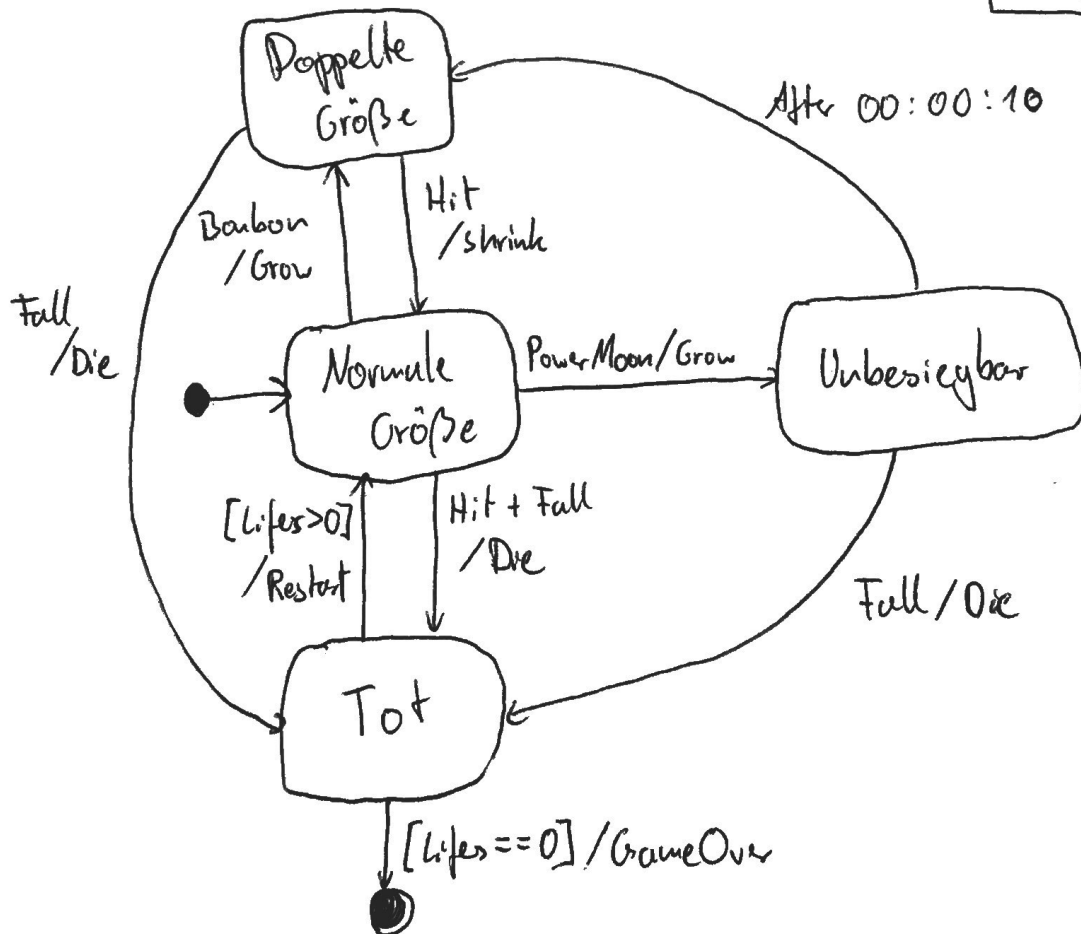 Doppelte
Größe
After 00:00:10
Bonbon
/Grow
Hit
/shrink
Fall
/Die
Normale
Größe
PowerMoon/Grow
Unbesiegbar
[Lifes>0]
/Restart
Hit + Fall
/Die
Fall/Die
Tot
[Lifes==0]/GameOver